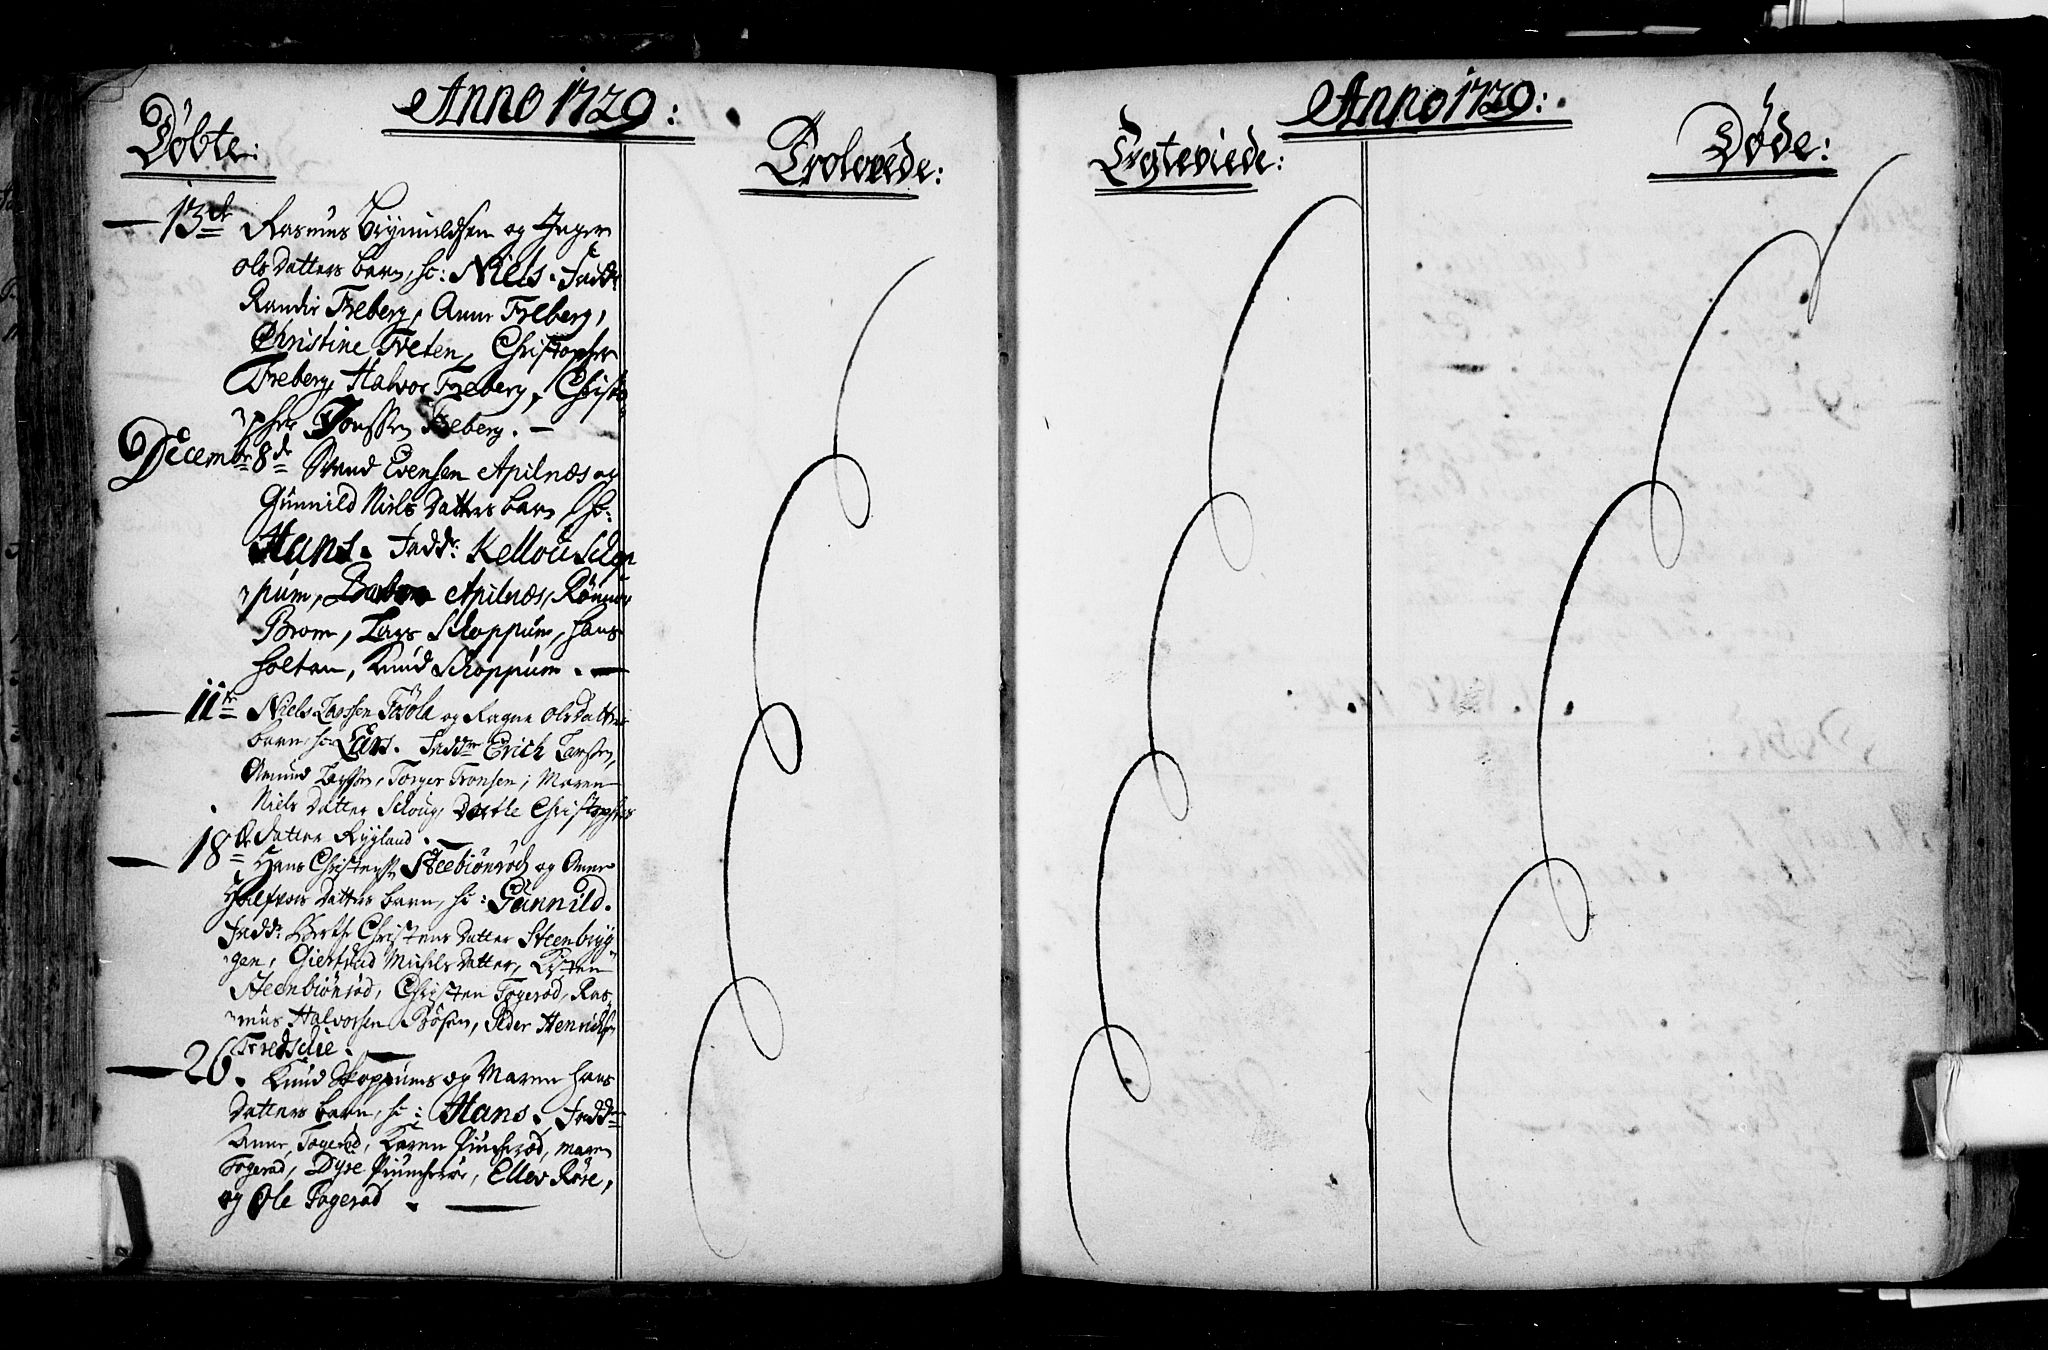 Anno 1729:
Döbte:
Trolovede:
13de Rasmus Brynnildsen og Inger
olsdatters barn, h: Niels. Fadd:
Randir Freberg, Anne Freberg,
Christine Freten, Christopher
Freberg, Halvor Freberg, Christo
pher Jonssen Freberg. —
Decembr 8de Svend Evensen Apilnæs og
Gunnild Niels Datters barn, h:
Hans. Fadd: Schop
pum, Apilnæs,
Brom, Lars Schoppum, Hans
holtan, Knud Schoppum. —
11te Niels Larssen og Ragne olsdatters
barn, h: Lars. Fadd: Erich Larssen,
Amund Larssen, Torger Tronsen, Maren
Niels datter Schoug, Dorthe Christophers
datter Rygland. —
18de Hans Christenss: Steebiönröd og Anne
datters barn, h: Gunnild.
Fadd: Berthe Christens datter Steenbryg
gen, Giertrud Michels datter,
Steenbiönröd, Christen Fogeröd, Ras
mus Halvorssen Böfen, Peder Henrichsen
—
26. Knud Skoppums og Maren Hans
datters barn, h: Hans. Fadd:
Anne Fogeröd, Karen Puncheröd, Maren
Fogeröd, Dyre Puncheröd, Ellev Röre,
og Ole Fogeröd. —
Anno 1729:
Egteviede:
Döde: